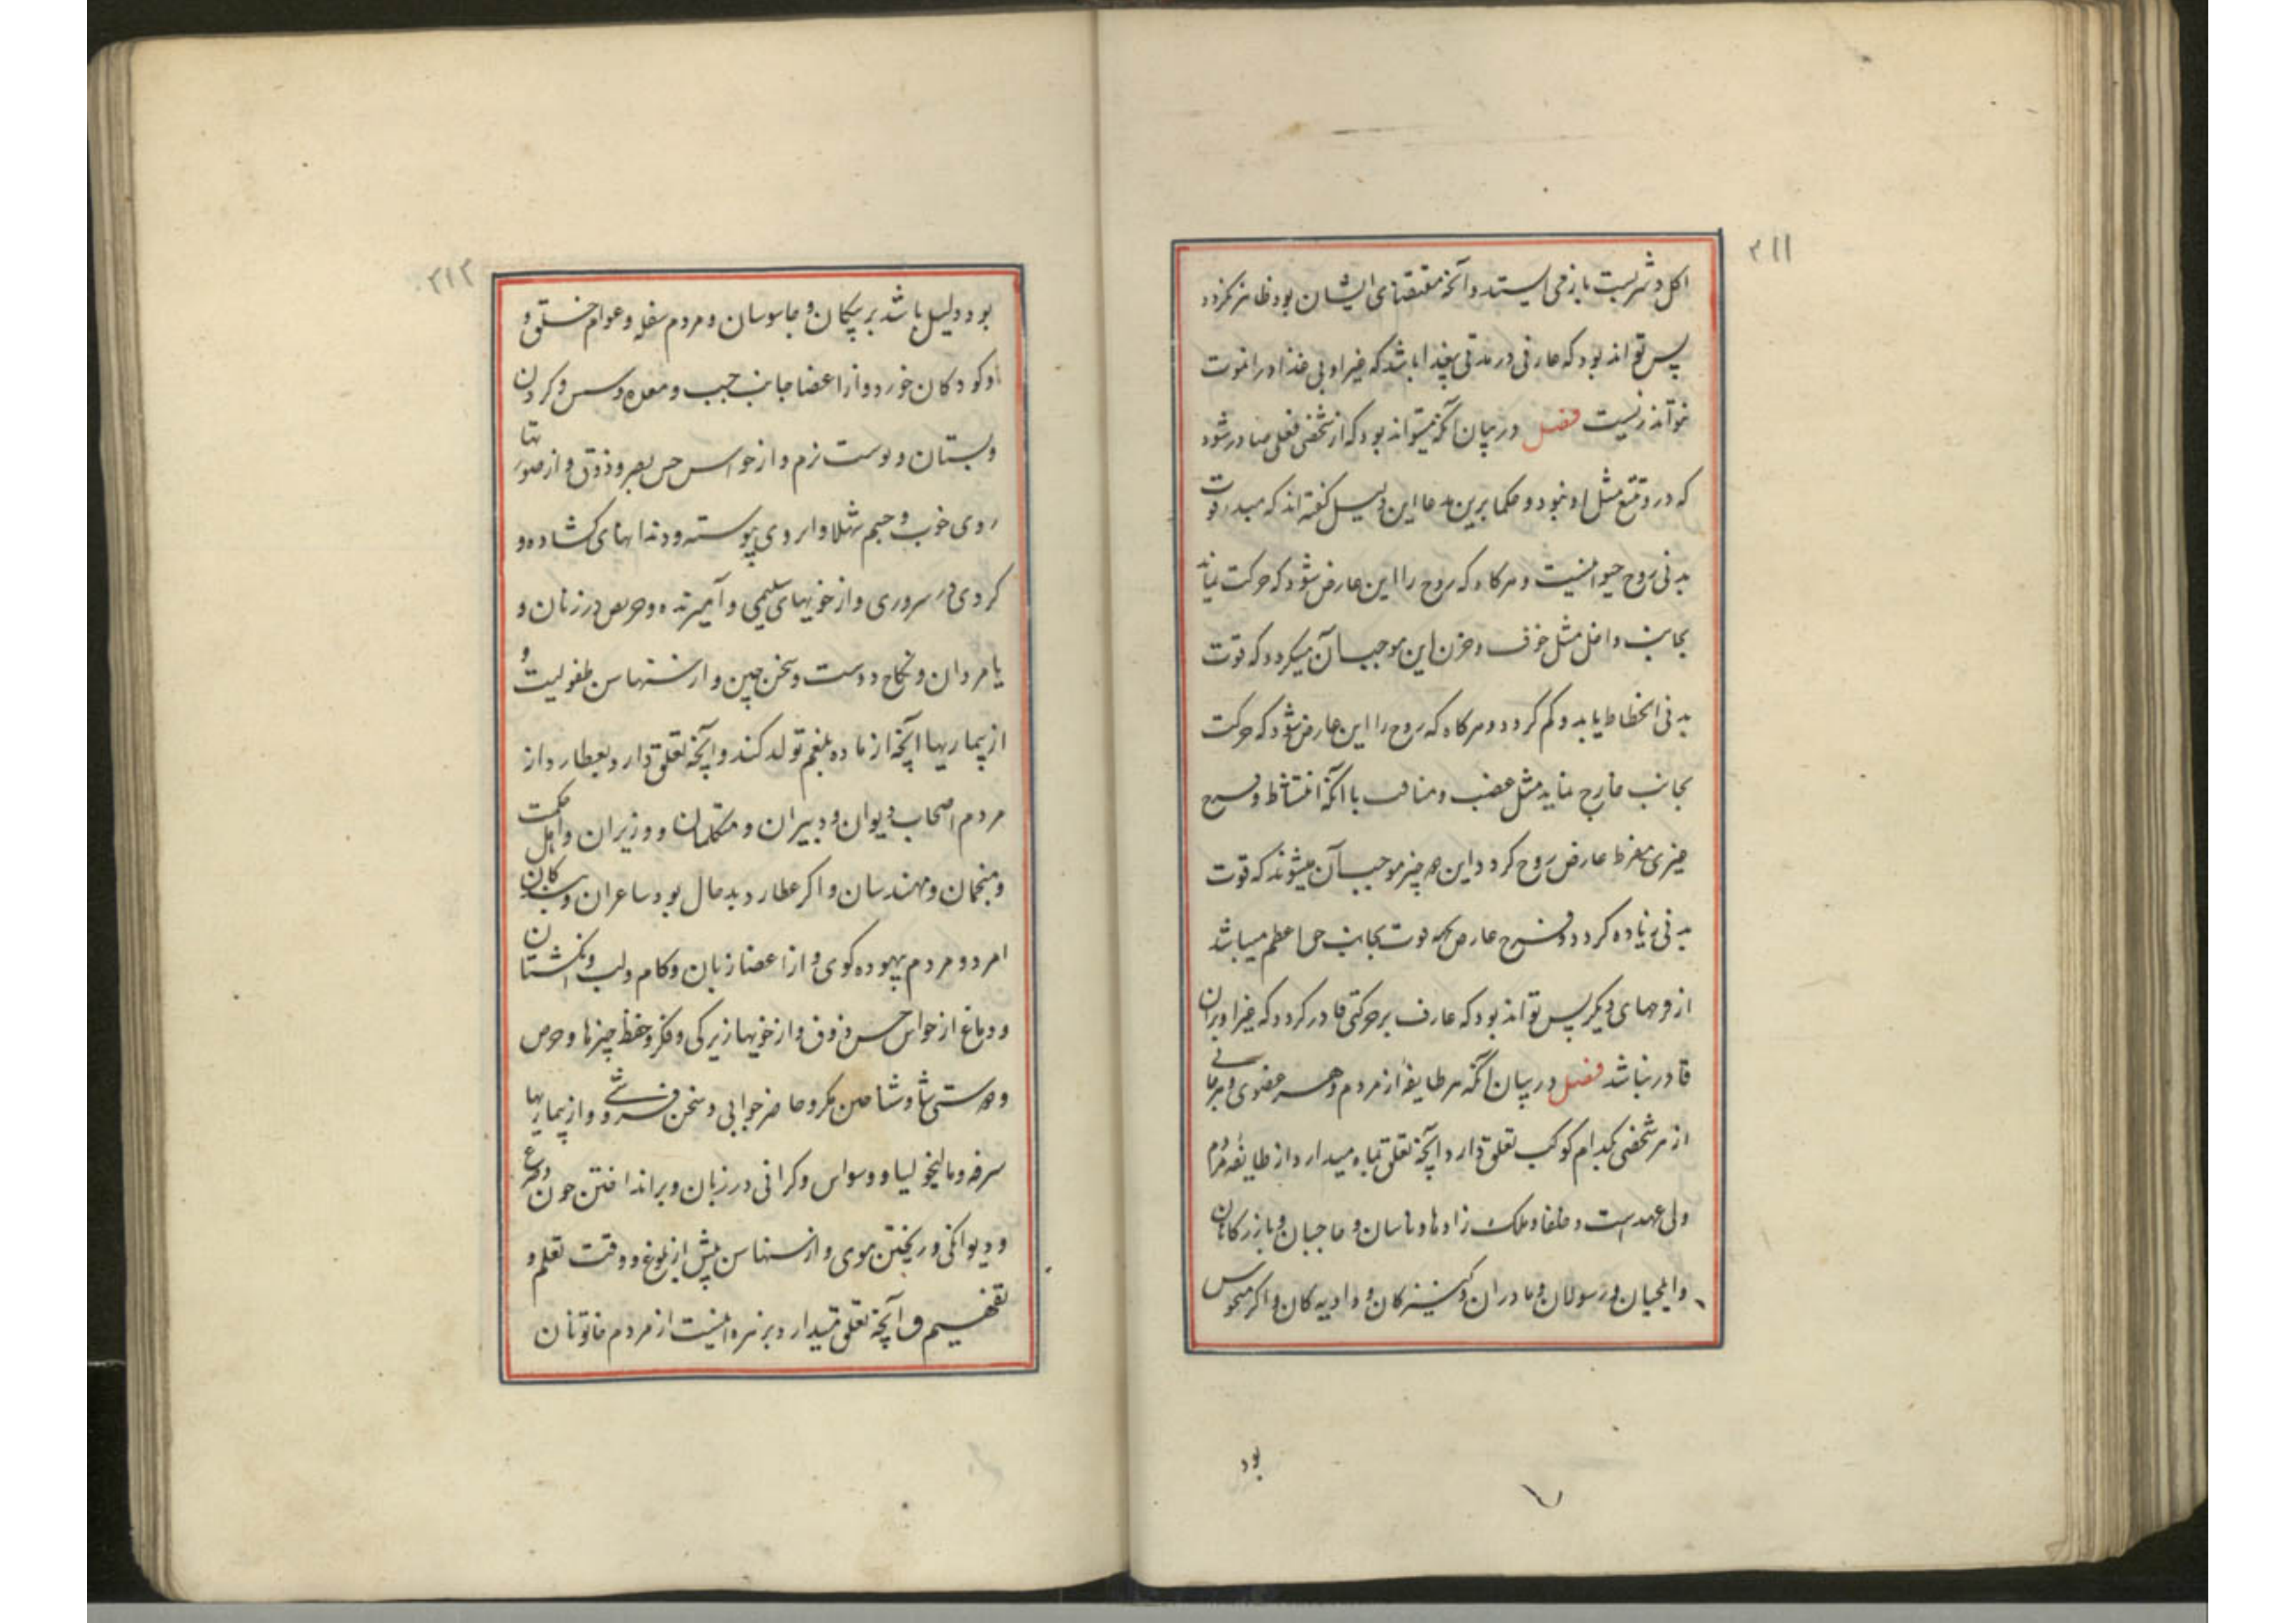 ۲۱۱
اکل و شرب بت باز می ایستند و آنچه مقتضای ایشان بود ظاهر نکردد
پس تواند بود که عارفی در مدتی بیغذا باشد که غیر او بی غذا در آنموت
نتواند زیست فصل در بیان آنکه میتواند بود که از شخصی فعلی صادر شود
که در وقتع مثل او نبود و حکما برین مدعا این دلیل گفته اند که مبدء قوت
بدنی روح حیوانیست و هرکاه که روح را این عارض شود که حرکت نماید
بجانب داخل مثل خوف و حزن این موجب آن میکردد که قوت
بدنی انحطاط یابد و کم کردد و هرکاه که روح را این عارض شود که حرکت
بجانب خارج نماید مثل غضب و منافت با آنکه انتشاط و فرح
چیزی مفرط عارض روح کردد این هر چیز موجب آن میشوند که قوت
بدنی زیاده کردد و فرح عارض بجانب حق اعظم میباشد
از فرحهای دیکر پس تواند بود که عارف بر حرکتی قادر کردد که غیر او بران
قادر نباشد فصل در بیان آنکه هر طایفه از مردم و هر عضوی و هر مانی
از هر شخصی بکدام کوکب تعلق دارد آنچه تعلق بماه میدارد از طایفه مردم
ولی عهد است و خلفا و ملک زادها و ناسان و حاجبان و بازرکانان
و ایلچیان و رسولان و مادران و کنیزکان و دایه کان و اکر منحوس
بود
۲۱۲
بود دلیل باشد بر پیکان و جاسوسان و مردم سفله و عوام خلق و
و کودکان خورد و از اعضا جانب چپ و معده و سس و کردن
و پستان و پوست نرم و از حواس حس بصر و ذوق و از صورتها
روی خوب و چشم شهلا و ابروی پیوسته و دندانهای کشاده و
کردی در سروری و از خویهای سلیمی و آمیزنده و حریص در زنان و
یا مردان و نکاح دوست و سخن چین و از سنها سن طفولیت و
از بیماریها آنچه از ماده بلغم تولد کند و آنچه تعلق دارد بعطارد از
مردم اصحاب دیوان و دبیران و متکلمان و وزیران و اهل حکمت
و منجمان و مهندسان و اکر عطارد بدحال بود ساعران و سبکان
امرد و مردم بیهوده کوی و از اعضا زبان و کام و لب و انکشتان
و دماغ از حواس حس ذوق و از خویها زیرکی و فکر و حفظ چیزها و حرص
و مکر و حاضر جوابی و سخن فروشی و از بیماریها
سرفه و مالیخولیا و وسواس و کرانی در زبان و برانداختن خون و صرع
و دیوانکی و ریختن موی و از سنها سن پیش از بلوغ و وقت تعلم و
تفهیم و آنچه تعلق میدارد بزهره اینست از مردم خاتونان